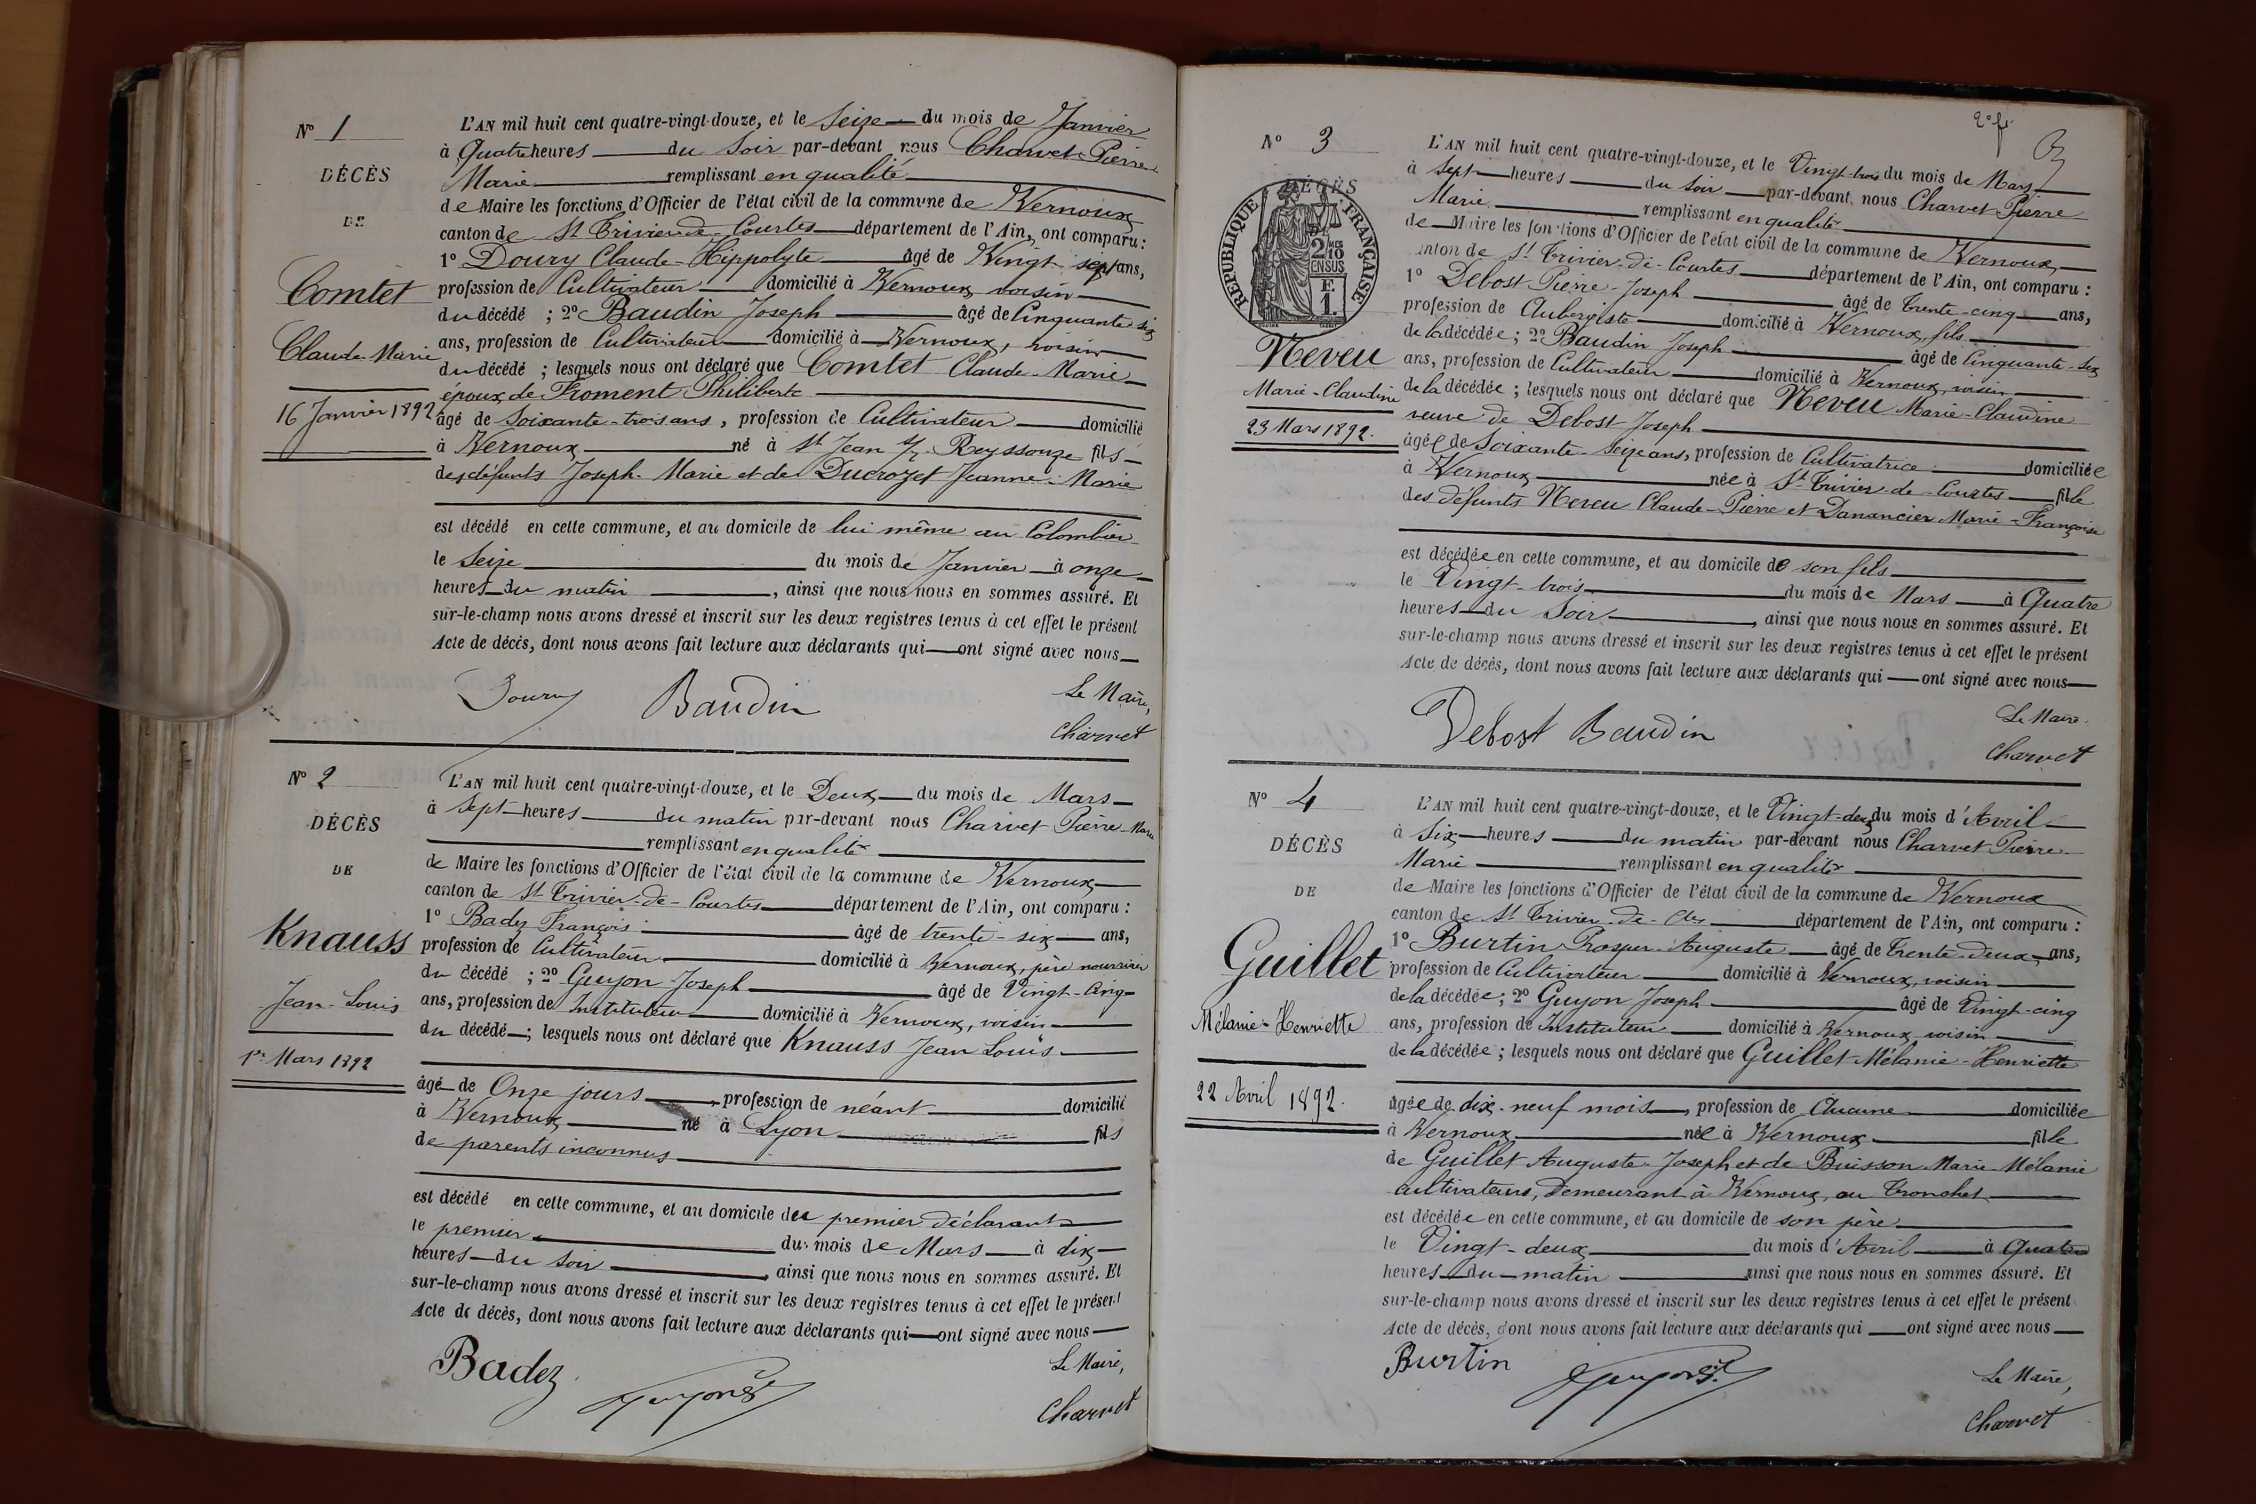 N° 1
DÉCÈS
DE
Comtet
Claude-Marie
16 Janvier 1892
L'AN mil huit cent quatre-vingt-douze, et le Seize du mois de Janvier
à Quatre heures du Soir par-devant nous Charvet Pierre
Marie remplissant en qualité
de Maire les fonctions d'Officier de l'état civil de la commune de Vernoux
canton de St Trivier-de-Courtes département de l'Ain, ont comparu :
1° Doury Claude-Hippolyte âgé de Vingt-sept ans,
profession de Cultivateur domicilié à Vernoux, voisin
du décédé ; 2° Baudin Joseph âgé de Cinquante six
ans, profession de Cultivateur domicilié à Vernoux, voisin
du décédé ; lesquels nous ont déclaré que Comtet Claude-Marie
époux de Froment Philiberte
âgé de Soixante-trois ans, profession de Cultivateur domicilié
à Vernoux né à St Jean s/ Reyssouze fils
des défunts Joseph-Marie et de Ducrozet Jeanne-Marie
est décédé en cette commune, et au domicile de lui même au Colombier
le Seize du mois de Janvier à onze
heures du matin, ainsi que nous nous en sommes assuré. Et
sur-le-champ nous avons dressé et inscrit sur les deux registres tenus à cet effet le présent
Acte de décès, dont nous avons fait lecture aux déclarants qui ont signé avec nous
Doury Baudin Le Maire,
Charvet
N° 2
DÉCÈS
DE
Knauss
Jean-Louis
1er Mars 1892
L'AN mil huit cent quatre-vingt-douze, et le Deux du mois de Mars
à Sept heures du matin par-devant nous Charvet Pierre-Marie
remplissant en qualité
de Maire les fonctions d'Officier de l'état civil de la commune de Vernoux
canton de St Trivier-de-Courtes département de l'Ain, ont comparu :
1° Badez François âgé de trente-six ans,
profession de Cultivateur domicilié à Vernoux, père nourricier
du décédé ; 2° Guyon Joseph âgé de Vingt-Cinq
ans, profession de Instituteur domicilié à Vernoux, voisin
du décédé ; lesquels nous ont déclaré que Knauss Jean Louis
âgé de Onze jours, profession de néant domicilié
à Vernoux né à Lyon fils
de parents inconnus
est décédé en cette commune, et au domicile du premier déclarant
le premier du mois de Mars à dix
heures du soir, ainsi que nous nous en sommes assuré. Et
sur-le-champ nous avons dressé et inscrit sur les deux registres tenus à cet effet le présent
Acte de décès, dont nous avons fait lecture aux déclarants qui ont signé avec nous
Badez Guyon Le Maire,
Charvet
2e f.
N° 3
DÉCÈS
RÉPUBLIQUE FRANÇAISE
Neveu
Marie-Claudine
23 Mars 1892.
L'AN mil huit cent quatre-vingt-douze, et le Vingt-trois du mois de Mars
à Sept heures du Soir par-devant nous Charvet Pierre
Marie remplissant en qualité
de Maire les fonctions d'Officier de l'état civil de la commune de Vernoux
canton de St Trivier-de-Courtes département de l'Ain, ont comparu :
1° Debost Pierre-Joseph âgé de Trente-cinq ans,
profession de Aubergiste domicilié à Vernoux, fils
de la décédée ; 2° Baudin Joseph âgé de Cinquante-six
ans, profession de Cultivateur domicilié à Vernoux, voisin
de la décédée ; lesquels nous ont déclaré que Neveu Marie-Claudine
veuve de Debost Joseph
âgée de Soixante-Seize ans, profession de Cultivatrice domiciliée
à Vernoux née à St Trivier-de-Courtes fille
des défunts Neveu Claude-Pierre et Danancier Marie-Françoise
est décédée en cette commune, et au domicile de son fils
le Vingt-trois du mois de Mars à Quatre
heures du Soir, ainsi que nous nous en sommes assuré. Et
sur-le-champ nous avons dressé et inscrit sur les deux registres tenus à cet effet le présent
Acte de décès, dont nous avons fait lecture aux déclarants qui ont signé avec nous
Debost Baudin Le Maire.
Charvet
N° 4
DÉCÈS
DE
Guillet
Mélanie-Henriette
22 Avril 1892.
L'AN mil huit cent quatre-vingt-douze, et le Vingt-deux du mois d'Avril
à Six heures du matin par-devant nous Charvet Pierre
Marie remplissant en qualité
de Maire les fonctions d'Officier de l'état civil de la commune de Vernoux
canton de St Trivier-de-Ctes département de l'Ain, ont comparu :
1° Burtin Prosper-Auguste âgé de Trente-deux ans,
profession de Cultivateur domicilié à Vernoux, voisin
de la décédée ; 2° Guyon Joseph âgé de Vingt-cinq
ans, profession de Instituteur domicilié à Vernoux, voisin
de la décédée ; lesquels nous ont déclaré que Guillet Mélanie-Henriette
âgée de dix-neuf mois, profession de Aucune domiciliée
à Vernoux née à Vernoux fille
de Guillet Auguste-Joseph et de Buisson Marie-Mélanie
cultivateurs, demeurant à Vernoux, au Tronchet
est décédée en cette commune, et au domicile de son père
le Vingt-deux du mois d'Avril à Quatre
heures du matin ainsi que nous nous en sommes assuré. Et
sur-le-champ nous avons dressé et inscrit sur les deux registres tenus à cet effet le présent
Acte de décès, dont nous avons fait lecture aux déclarants qui ont signé avec nous
Burtin Guyon Le Maire,
Charvet